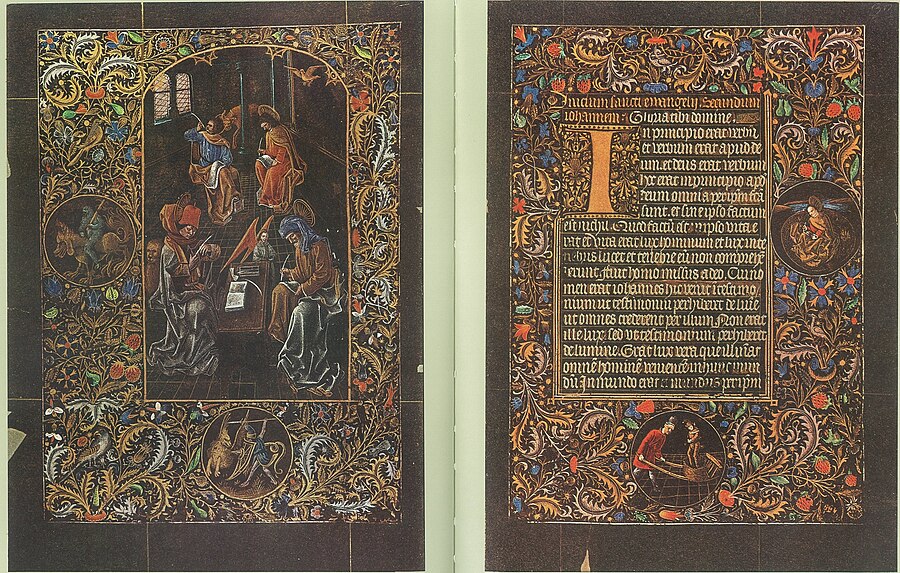 Inicium sancti evangelij. Secundum
iohannem. Gloria tibi domine.
In principio erat verbū
et verbum erat apud de
um. et deus erat verbum
hoc erat in principio apō
deum omnia per ipm fcā
sunt. et sine ipso factum
est nichil. Quod factū est in ipso vita e
rat et vita erat lux hominum et lux in te
nebris lucet et tenebre eū non comprehē
derunt. ffuit homo missus a deo. Cui no
men erat iohannes hic venit ī testimo
nium ut testimonium perhiberet de lumīe
ut omnes crederent per illum. Non erat
ille lux. sed ut testimonium perhiberet
de lumine. Erat lux vera que illuīat
omnē hominē venientē in hunc mun
dū In mundo erat et mundus per ipm